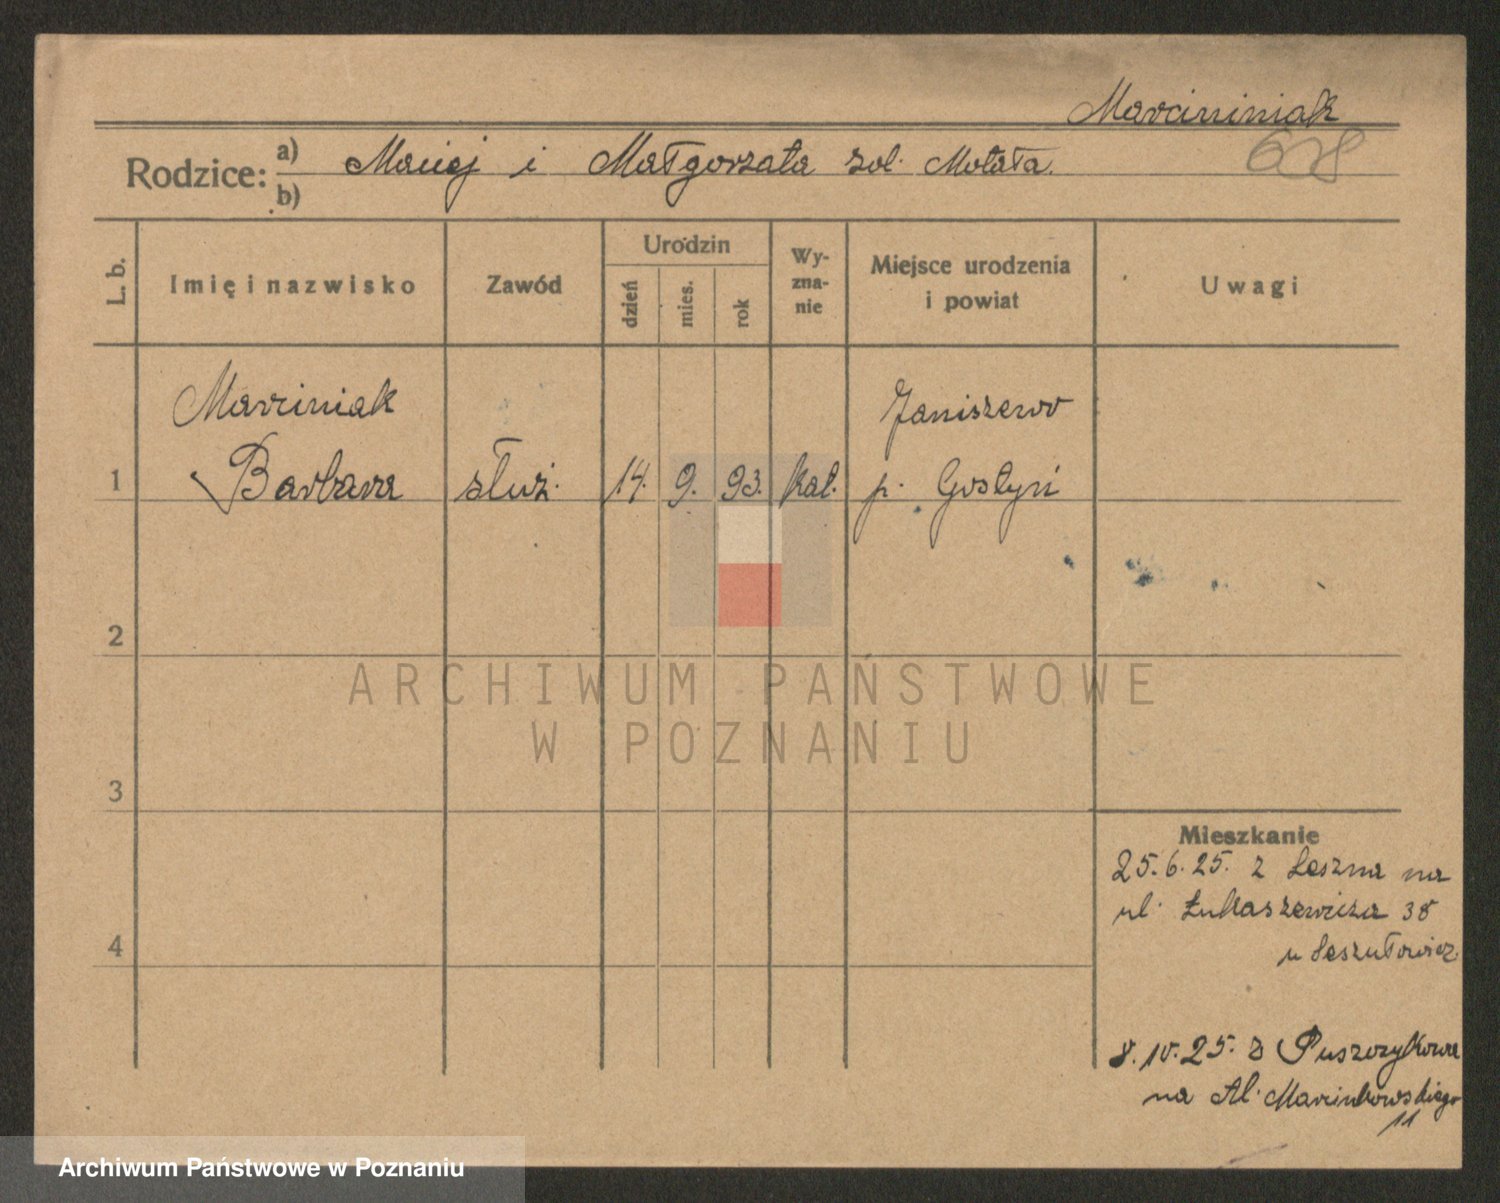 Marciniak
628
Rodzice: a) Maciej i Małgorzata zol. Motała.
b)
L. b.
Imię i nazwisko
Zawód
Urodzin
dzień
mies.
rok
Wy-
zna-
nie
Miejsce urodzenia
i powiat
Uwagi
Marciniak Janiszewo
1 Barbara służ. 14. 9. 93. kat. p. Gostyń
2
ARCHIWUM PAŃSTWOWE
W POZNANIU
3
Mieszkanie
25.6.25. z Leszna na
ul. Łukaszewicza 38
4
u
8.10.25. z Puszczykowa
na Al. Marcinkowskiego
11
Archiwum Państwowe w Poznaniu